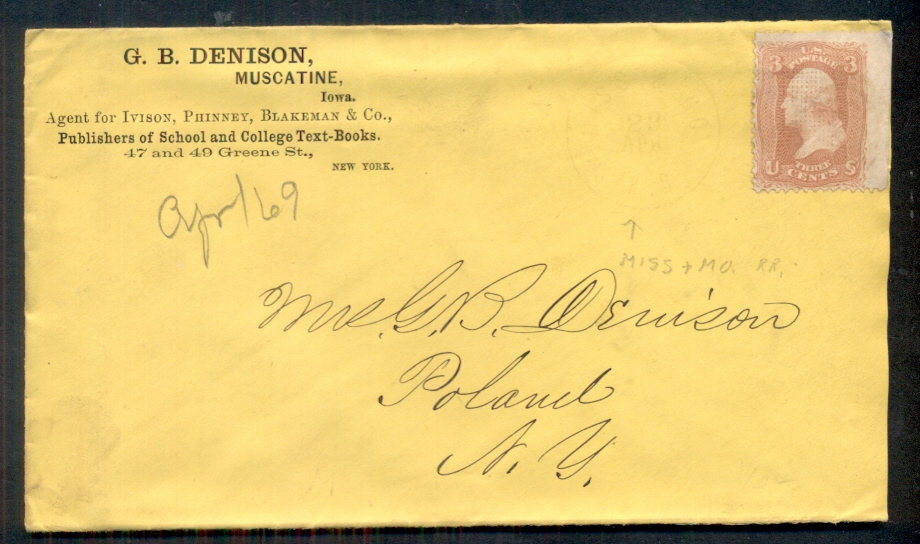 G. B. DENISON,
MUSCATINE,
Iowa.
Agent for IVISON, PHINNEY, BLAKEMAN & Co.,
Publishers of School and College Text-Books.
47 and 49 Greene St.,
NEW YORK.
U.S.
POSTAGE
3 3
U THREE S
CENTS
Apr/69
MISS + MO. RR.
Mrs. G. B. Denison
Poland
N. Y.